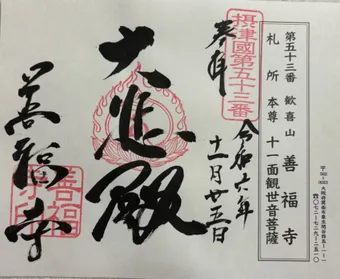 第五十三番 歓喜山 善福寺
札所本尊 十一面観世音菩薩
摂津國第五十三番
奉拝
令和六年
十一月廿三日
大悲殿
善福寺